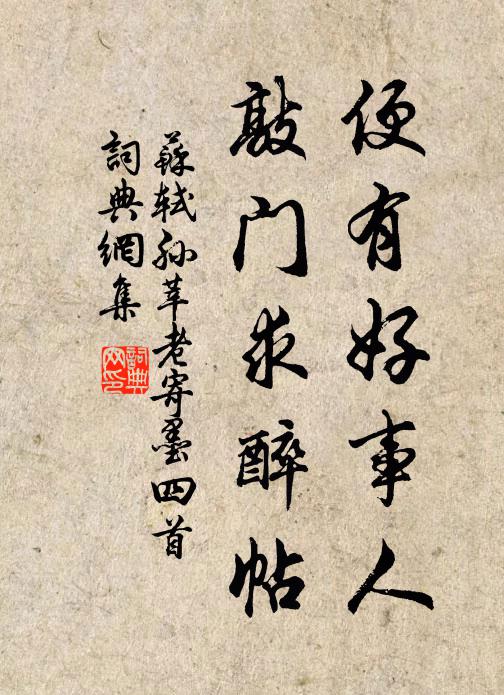 便有好事人
敲门求醉帖
蘇軾孙莘老寄墨四首
詞典網集
詞典網印